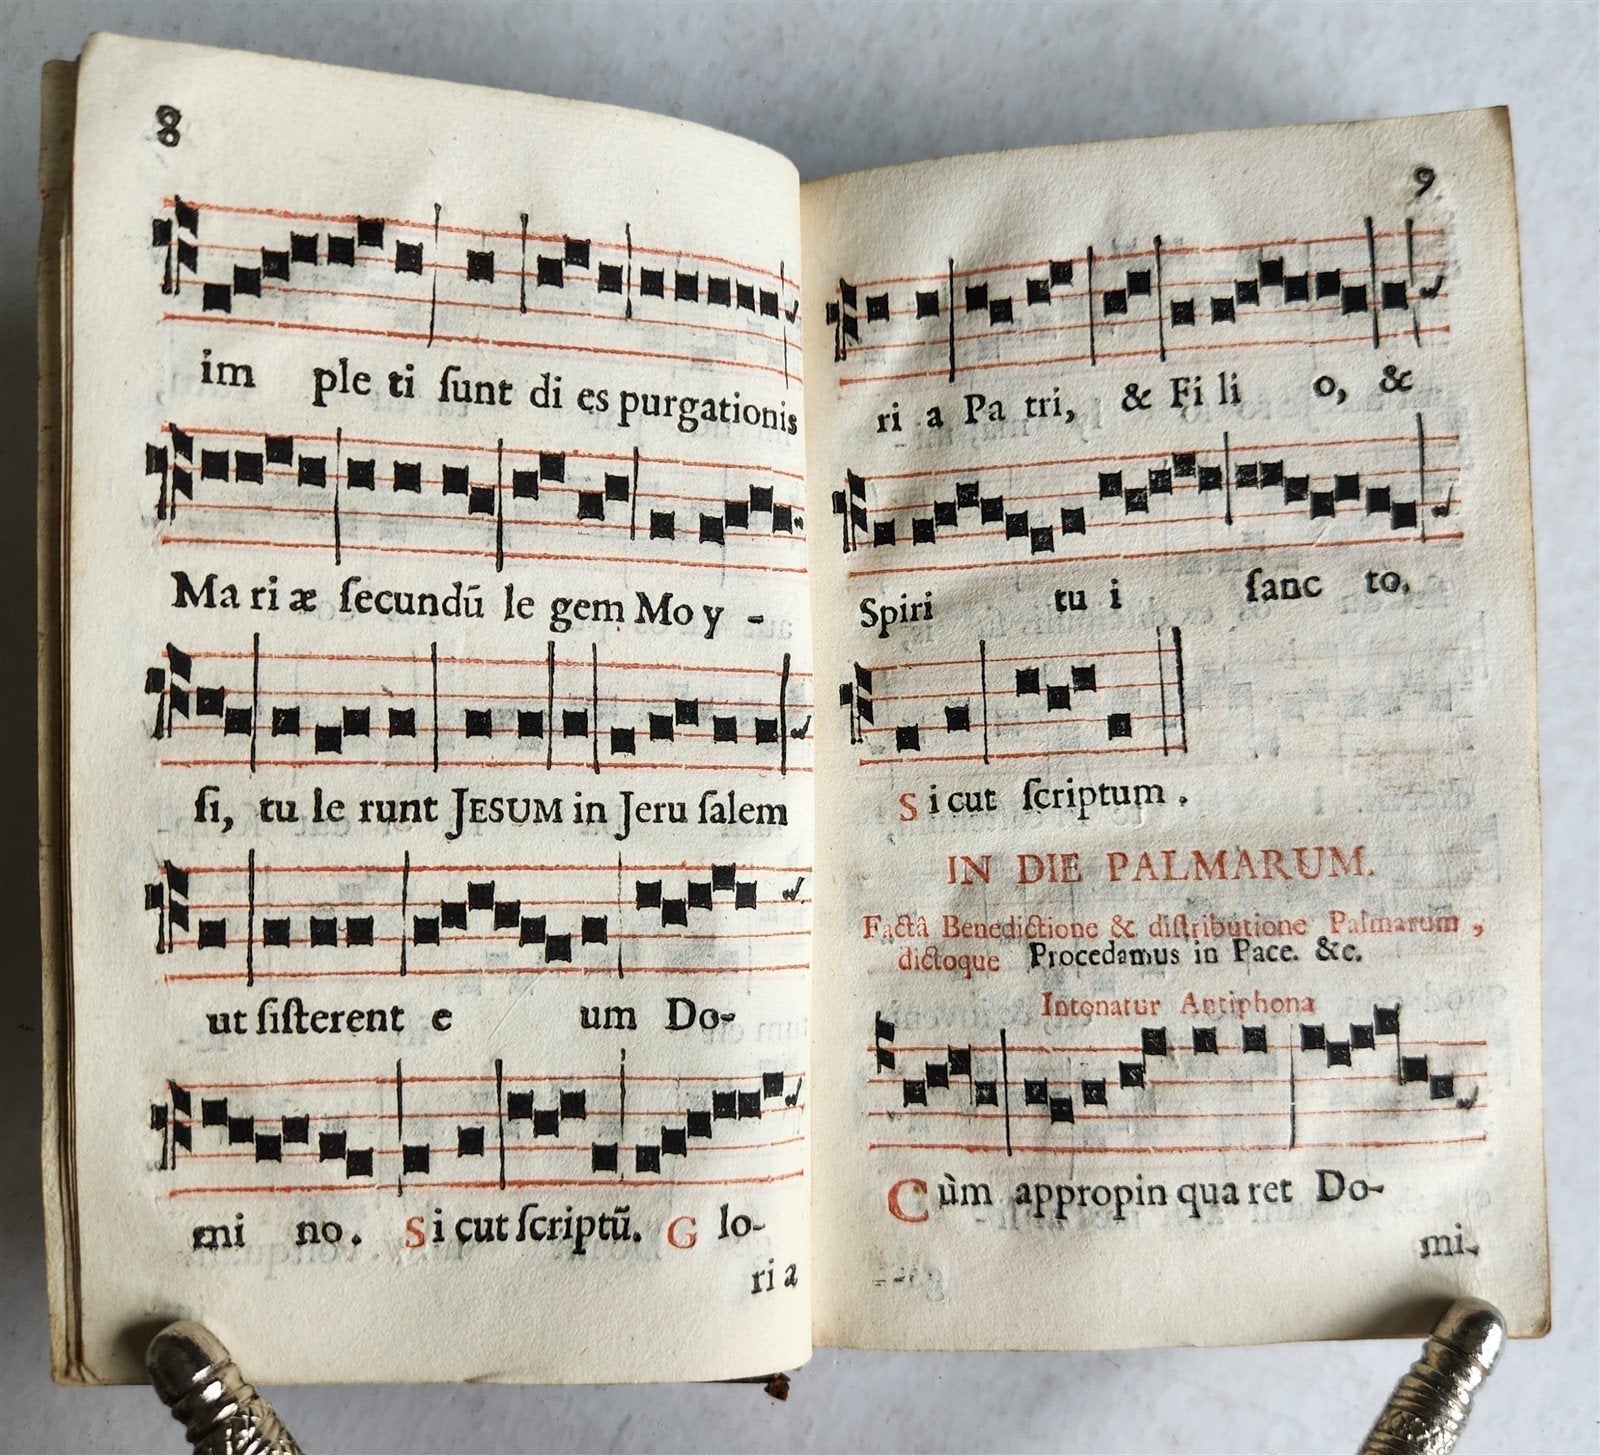 8
im ple ti ſunt di es purgationis
Ma ri æ ſecundū le gem Mo y -
ſi, tu le runt JESUM in Jeru ſalem
ut ſiſterent e um Do-
mi no. Si cut ſcriptū. G lo-
ri a
9
ri a Pa tri, & Fi li o, &
Spiri tu i ſanc to.
S i cut ſcriptum.
IN DIE PALMARUM.
Factâ Benedictione & diſtributione Palmarum,
dictoque Procedamus in Pace. &c.
Intonatur Antiphona
Cùm appropin qua ret Do-
mi-